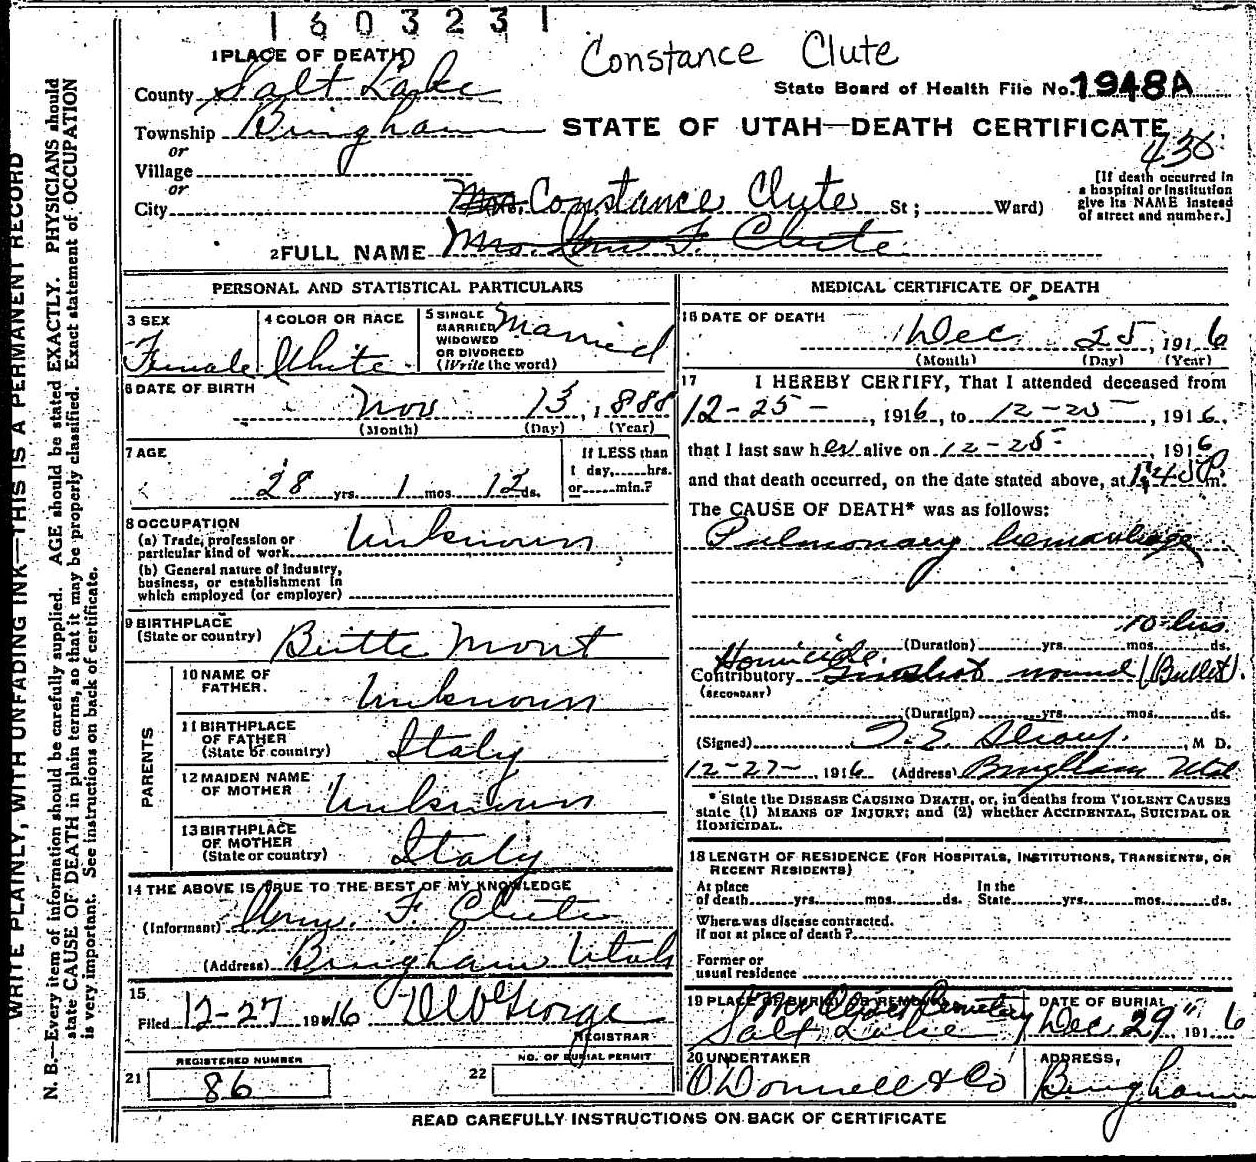 1603231
Constance Clute
1 PLACE OF DEATH
County Salt Lake
State Board of Health File No. 1948A
Township Bingham
STATE OF UTAH—DEATH CERTIFICATE
436
or
Village
or
City Mrs. Constance Clute St; Ward)
[If death occurred in
a hospital or institution
give its NAME instead
of street and number.]
2 FULL NAME Mrs. Wm F. Clute
PERSONAL AND STATISTICAL PARTICULARS
3 SEX Female
4 COLOR OR RACE White
5 SINGLE
MARRIED
WIDOWED
OR DIVORCED
(Write the word) Married
6 DATE OF BIRTH
Nov 13, 1888
(Month) (Day) (Year)
7 AGE
28 yrs. 1 mos. 12 ds.
If LESS than
1 day, hrs.
or min.?
8 OCCUPATION
(a) Trade, profession or
particular kind of work Unknown
(b) General nature of industry,
business, or establishment in
which employed (or employer)
9 BIRTHPLACE
(State or country) Butte Mont
PARENTS
10 NAME OF
FATHER. Unknown
11 BIRTHPLACE
OF FATHER
(State or country) Italy
12 MAIDEN NAME
OF MOTHER Unknown
13 BIRTHPLACE
OF MOTHER
(State or country) Italy
14 THE ABOVE IS TRUE TO THE BEST OF MY KNOWLEDGE
(Informant) Wm. F. Clute
(Address) Bingham Utah
15
Filed 12-27 1916
George
REGISTRAR
REGISTERED NUMBER
21 86
NO. OF BURIAL PERMIT
22
MEDICAL CERTIFICATE OF DEATH
16 DATE OF DEATH
Dec 25, 1916
(Month) (Day) (Year)
17 I HEREBY CERTIFY, That I attended deceased from
12-25-, 1916, to 12-25-, 1916,
that I last saw her alive on 12-25-, 1916
and that death occurred, on the date stated above, at 1:45 P. m.
The CAUSE OF DEATH* was as follows:
Pulmonary hemorrhage
10 hrs
(Duration) yrs. mos. ds.
Homicide.
Contributory Gunshot wound (Bullet).
(SECONDARY)
(Duration) yrs. mos. ds.
(Signed) , M D.
12-27-, 1916 (Address) Bingham Utah
* State the DISEASE CAUSING DEATH, or, in deaths from VIOLENT CAUSES
state (1) MEANS OF INJURY; and (2) whether ACCIDENTAL, SUICIDAL OR
HOMICIDAL.
18 LENGTH OF RESIDENCE (FOR HOSPITALS, INSTITUTIONS, TRANSIENTS, OR
RECENT RESIDENTS)
At place
of death yrs. mos. ds.
In the
State yrs. mos. ds.
Where was disease contracted.
If not at place of death?
Former or
usual residence
19 PLACE OF BURIAL OR REMOVAL
Mt Olivet Cemetery
Salt Lake
DATE OF BURIAL
Dec 29" 1916
20 UNDERTAKER
O'Donnell & Co
ADDRESS,
Bingham
READ CAREFULLY INSTRUCTIONS ON BACK OF CERTIFICATE
WRITE PLAINLY, WITH UNFADING INK—THIS IS A PERMANENT RECORD
N. B.—Every item of information should be carefully supplied. AGE should be stated EXACTLY. PHYSICIANS should
state CAUSE OF DEATH in plain terms, so that it may be properly classified. Exact statement of OCCUPATION
is very important. See instructions on back of certificate.